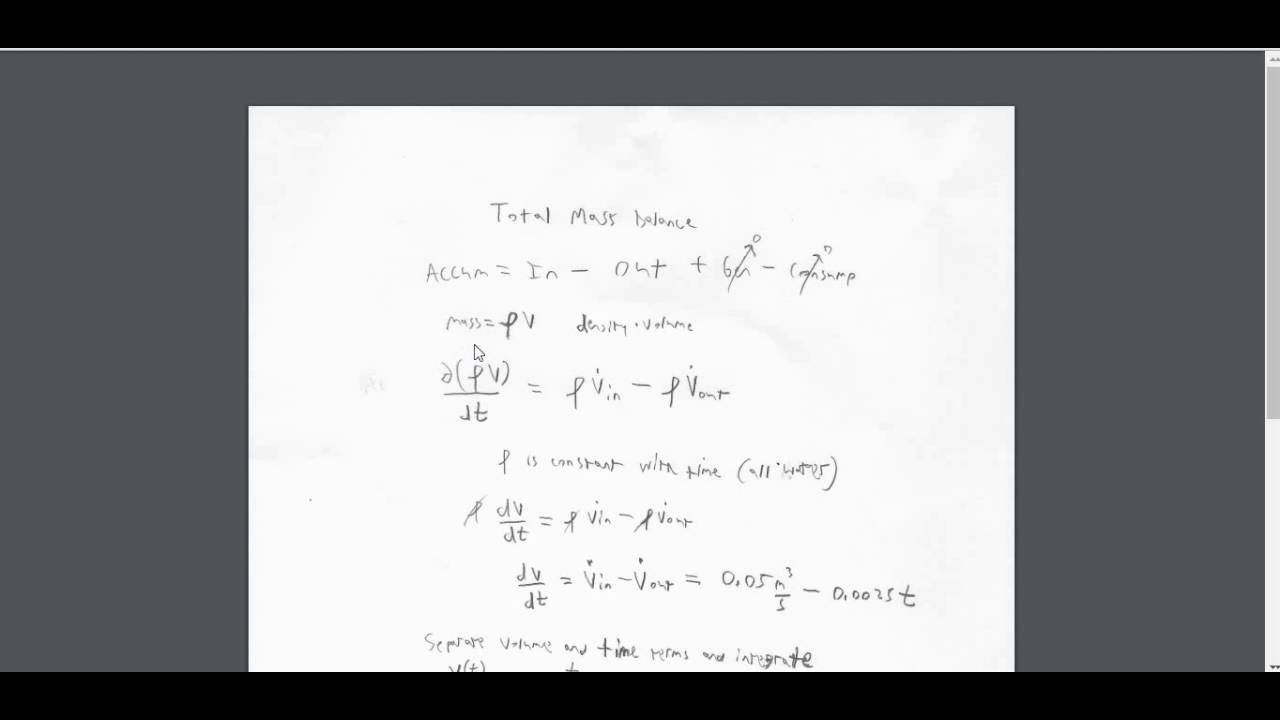 Total Mass balance
Accum = In - Out + Gen 0 - Consump 0
mass = ρV density · volume
∂(ρV)/dt = ρV̇in - ρV̇out
ρ is constant with time (all water)
ρ dV/dt = ρ V̇in - ρV̇out
dV/dt = V̇in - V̇out = 0.05 m³/s - 0.0025 t
Separate volume and time terms and integrate
V(t) t